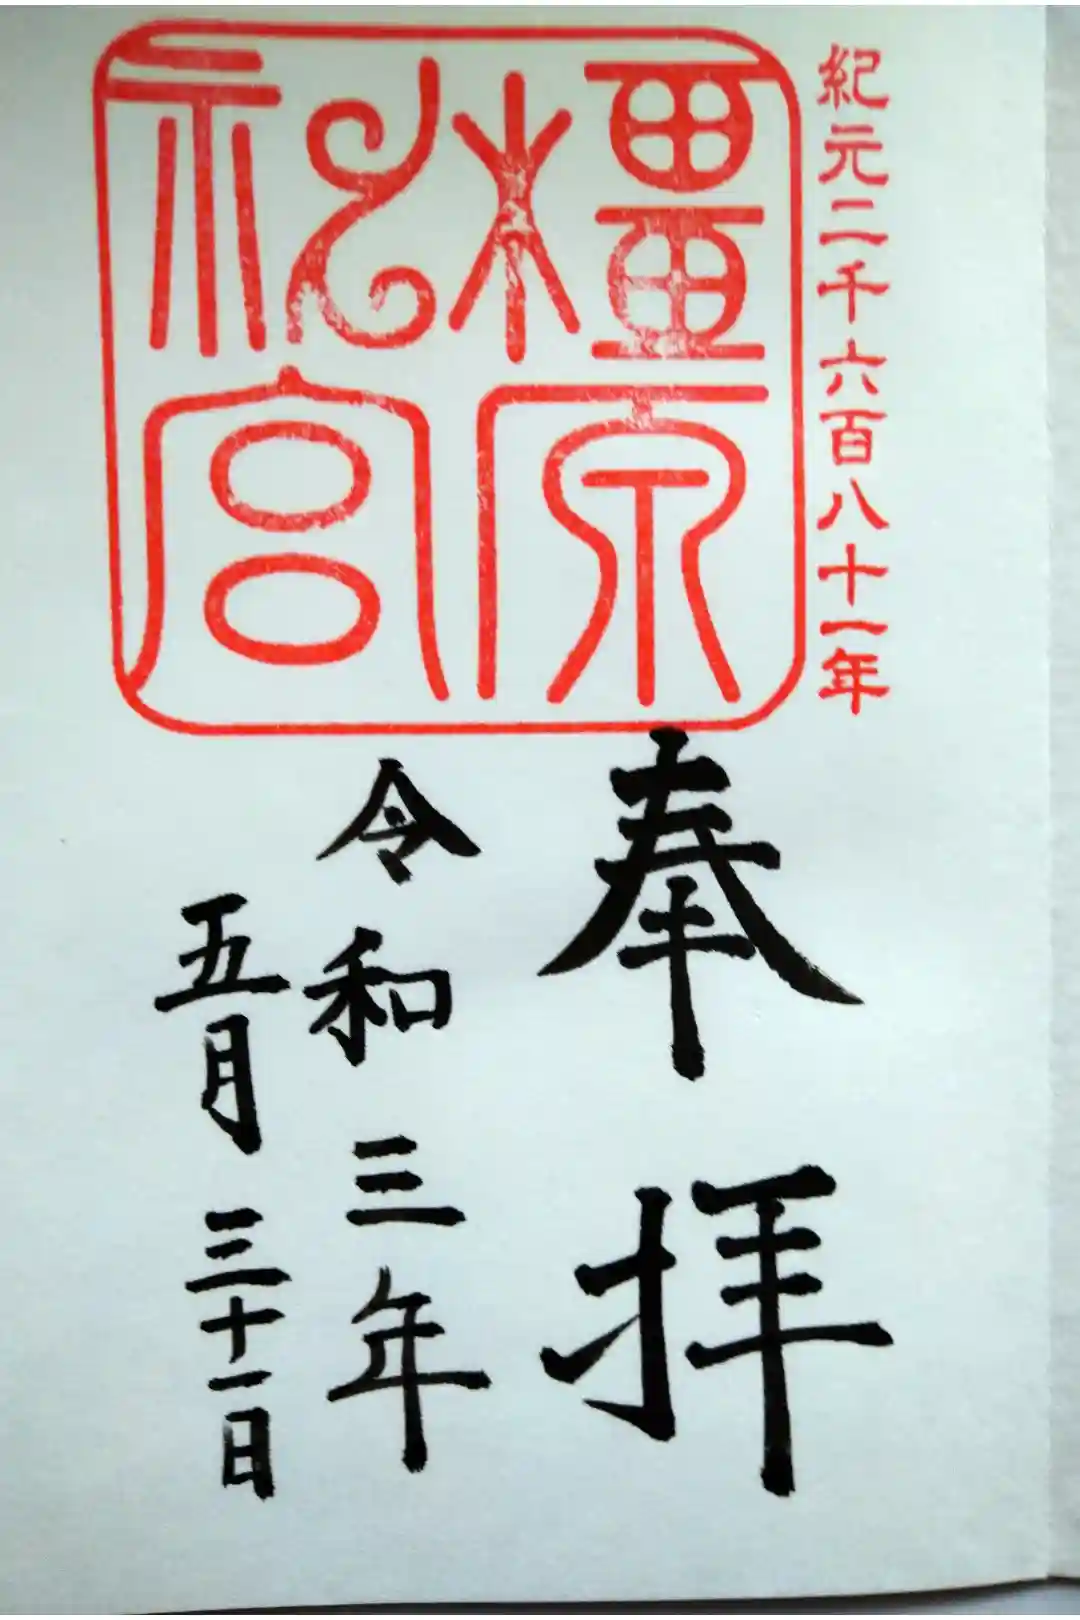 紀元二千六百八十一年
橿原
神宮
奉拝
令和三年
五月三十一日